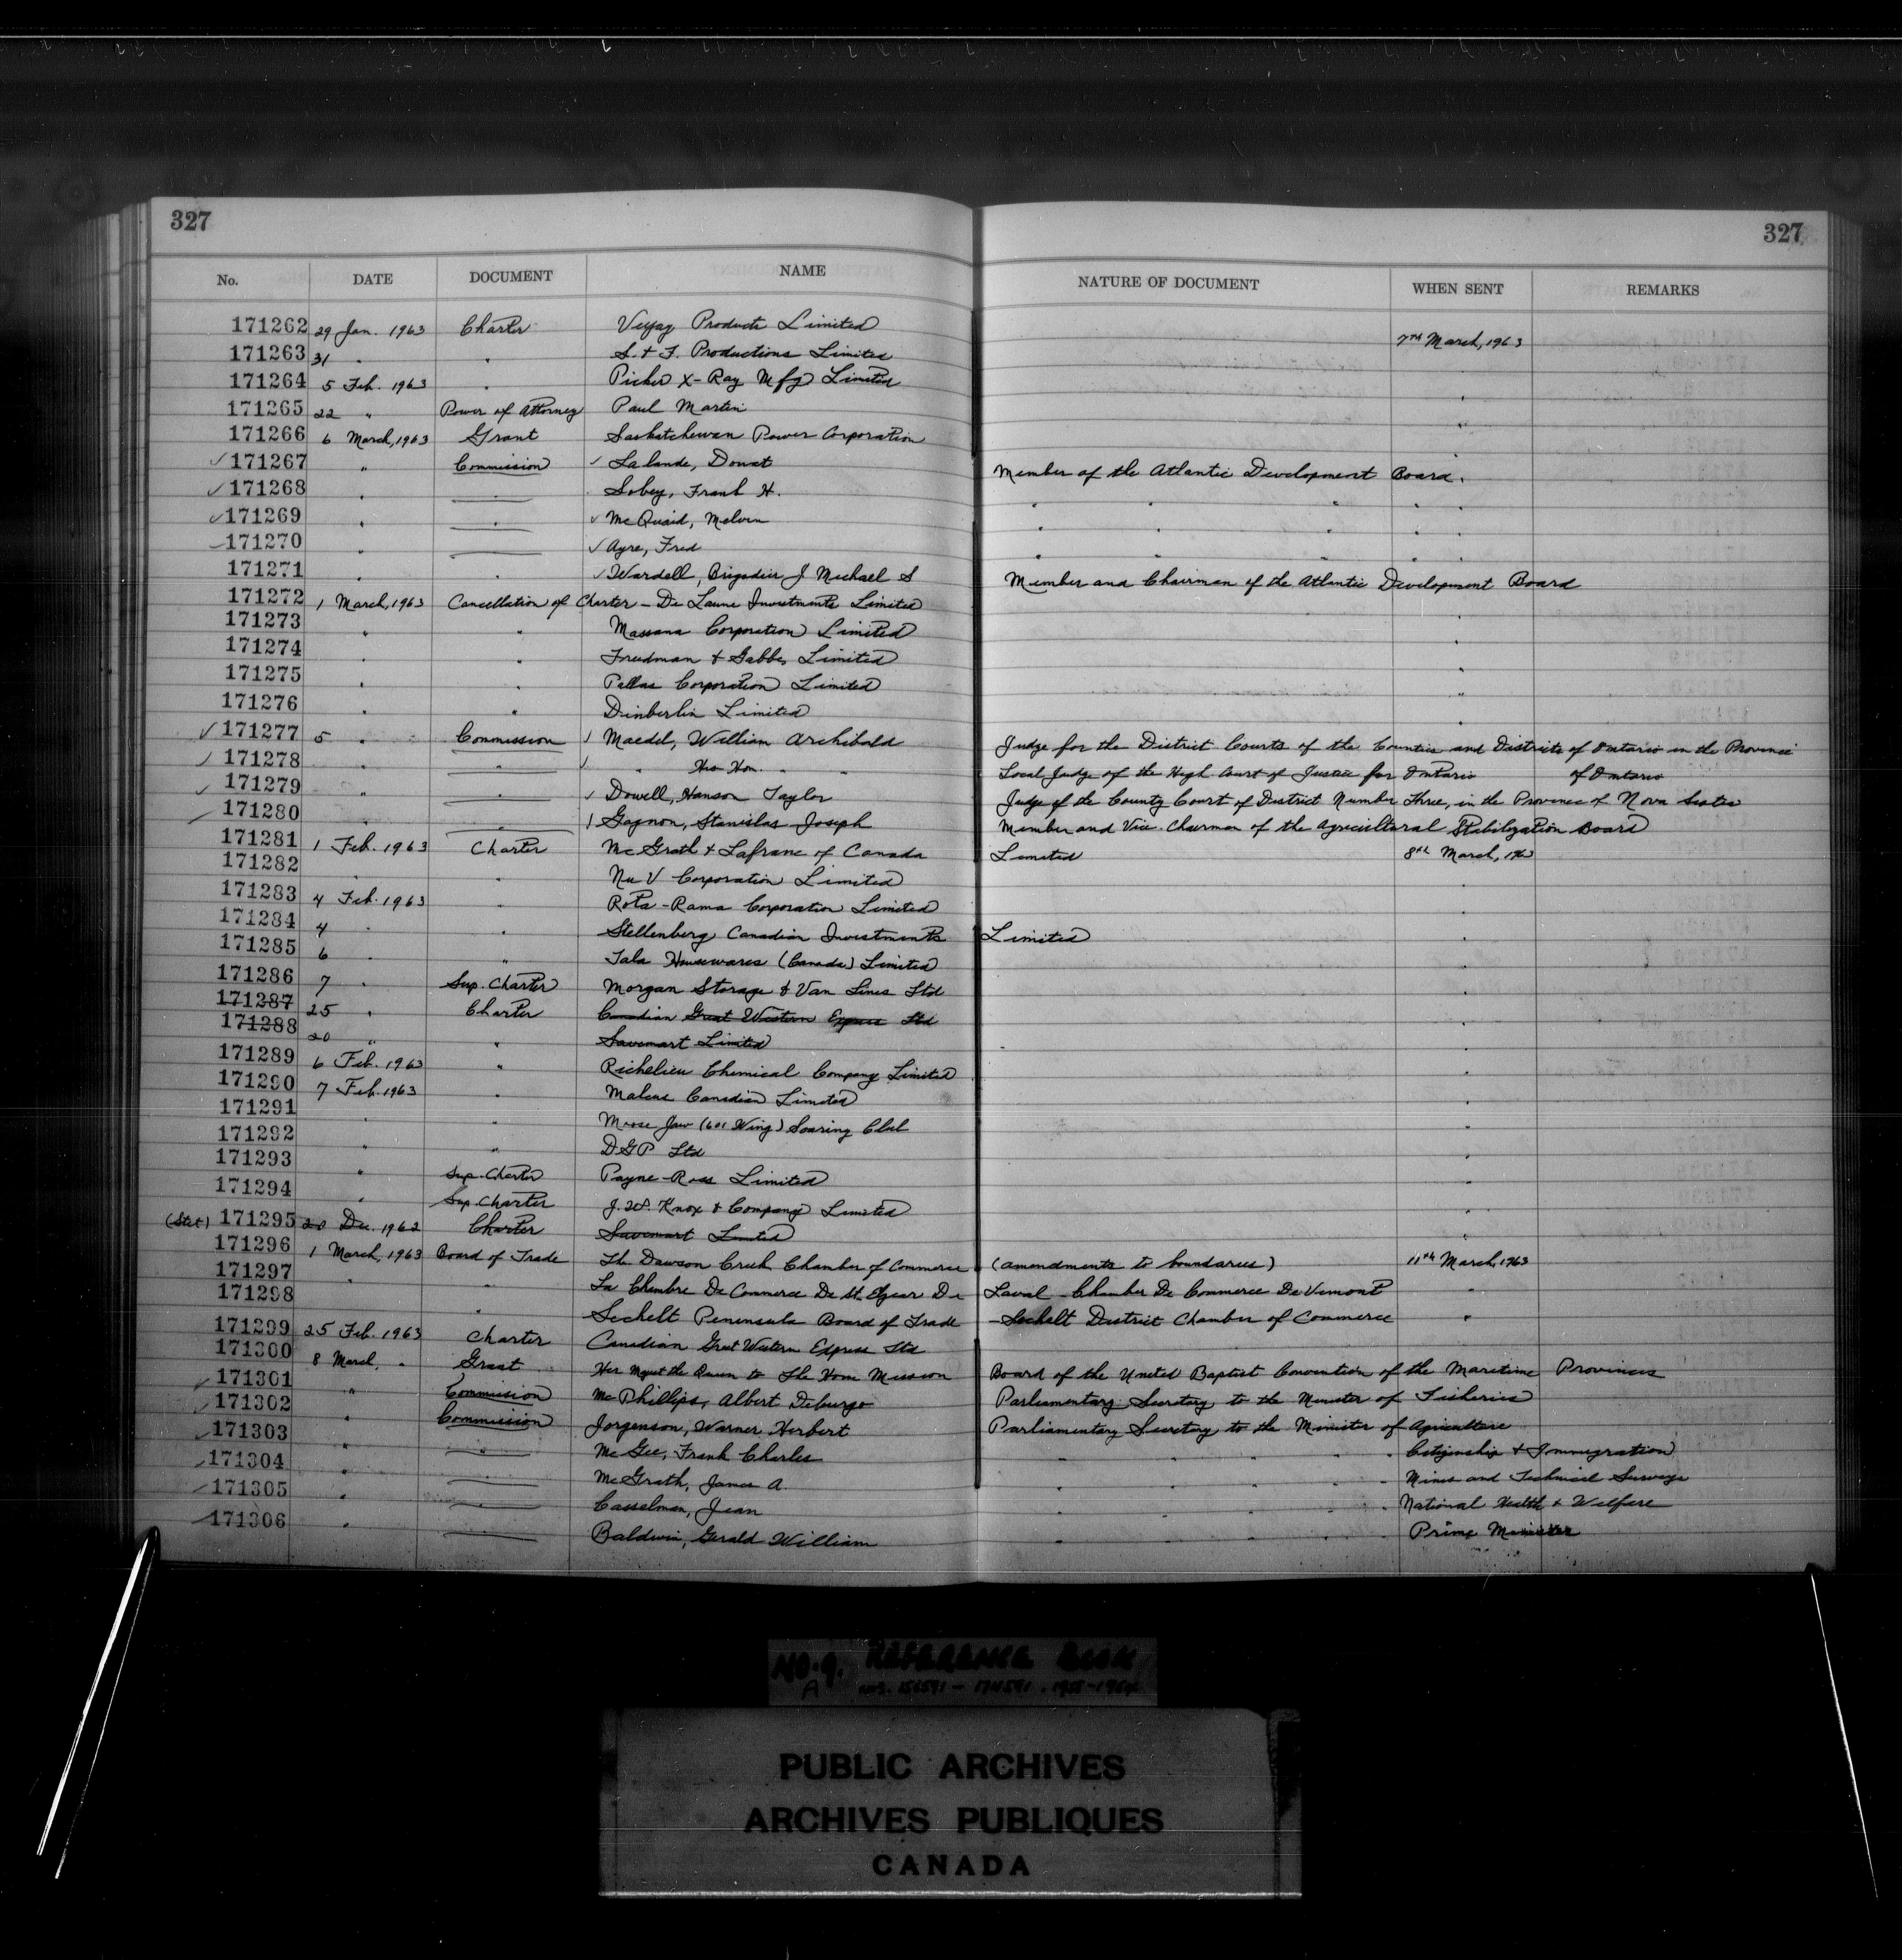 327 327
No. DATE DOCUMENT NAME NATURE OF DOCUMENT WHEN SENT REMARKS
171262 29 Jan. 1963 Charter Products Limited 7th March, 1963
171263 31 " " S. & F. Productions Limited
171264 5 Feb. 1963 " Picker X-Ray Mfg Limited "
171265 22 " Power of Attorney Paul Martin "
171266 6 March, 1963 Grant Saskatchewan Power Corporation "
✓ 171267 " Commission ✓ Lalande, Donat Member of the Atlantic Development Board.
✓ 171268 " " Sobey, Frank H. " " " " "
✓ 171269 " " ✓ McQuaid, Melvin " " " " "
171270 " ✓ Ayre, Fred " " " " "
171271 " " ✓ Wardell, Brigadier J Michael S Member and Chairman of the Atlantic Development Board
171272 1 March, 1963 Cancellation of Charter - De Laune Investments Limited "
171273 " " Massana Corporation Limited "
171274 " " Freedman & Gabbe, Limited "
171275 " " Pallas Corporation Limited "
171276 " " Dinberlin Limited "
✓ 171277 5 " Commission Maedel, William Archibald Judge for the District Courts of the Counties and Districts of Ontario in the Province
171278 " " " His Hon. " " Local Judge of the High Court of Justice for Ontario of Ontario
✓ 171279 " " ✓ Dowell, Hanson Taylor Judge of the County Court of District Number Three, in the Province of Nova Scotia
171280 " Gagnon, Stanislas Joseph Member and Vice-Chairman of the Agricultural Stabilization Board
171281 1 Feb. 1963 Charter McGrath & Lafranc of Canada Limited 8th March, 1963
171282 " " Nu V Corporation Limited "
171283 4 Feb. 1963 " Rota-Rama Corporation Limited "
171284 4 " " Stellenberg Canadian Investments Limited "
171285 6 " " Tala Housewares (Canada) Limited "
171286 7 " Sup. Charter Morgan Storage & Van Lines Ltd "
171287 25 " Charter Canadian Great Western Express Ltd "
171288 20 " " Savemart Limited "
171289 6 Feb. 1963 " Richelieu Chemical Company Limited "
171290 7 Feb. 1963 " Canadian Limited "
171291 " " Moose Jaw (601 Wing) Soaring Club "
171292 " " DGP Ltd "
171293 " Sup. Charter Payne-Ross Limited "
171294 " Sup. Charter J. W. Knox & Company Limited "
(Stet) 171295 20 Dec. 1962 Charter Savemart Limited "
171296 1 March, 1963 Board of Trade The Dawson Creek Chamber of Commerce (amendments to boundaries) 11th March, 1963
171297 " " La Chambre De Commerce De St. Elzear De Laval - Chamber De Commerce De Vimont "
171298 " Sechelt Peninsula Board of Trade - Sechelt District Chamber of Commerce "
171299 25 Feb. 1963 Charter Canadian Great Western Express Ltd
171300 8 March, " Grant Her Majest the Queen to The Home Mission Board of the United Baptist Convention of the Maritime Provinces
171301 " Commission McPhillips, Albert Deburgo Parliamentary Secretary to the Minister of Fisheries
171302 " Commission Jorgenson, Warner Herbert Parliamentary Secretary to the Minister of Agriculture
171303 " " McGee, Frank Charles " " " " Citizenship & Immigration
171304 " McGrath, James A. " " " " Mines and Technical Surveys
171305 " Casselman, Jean " " " " National Health & Welfare
171306 " Baldwin, Gerald William " " " " Prime Minister
NO. 9. REFERENCE BOOK
A
PUBLIC ARCHIVES
ARCHIVES PUBLIQUES
CANADA